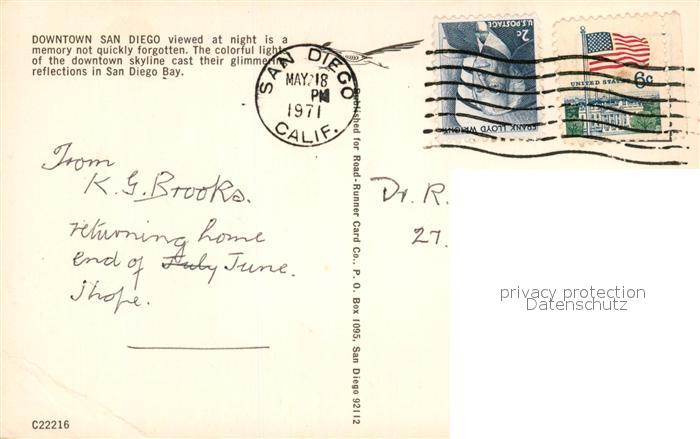 DOWNTOWN SAN DIEGO viewed at night is a
memory not quickly forgotten. The colorful light
of the downtown skyline cast their glimmering
reflections in San Diego Bay.
SAN DIEGO
MAY 18
PM
1971
CALIF.
2c
U.S. POSTAGE
FRANK LLOYD WRIGHT
UNITED STATES
6c
From
K. G. Brooks.
returning home
end of July June.
i hope.
Published for Road-Runner Card Co., P. O. Box 1095, San Diego 92112
Dr. R.
27.
privacy protection
Datenschutz
C22216